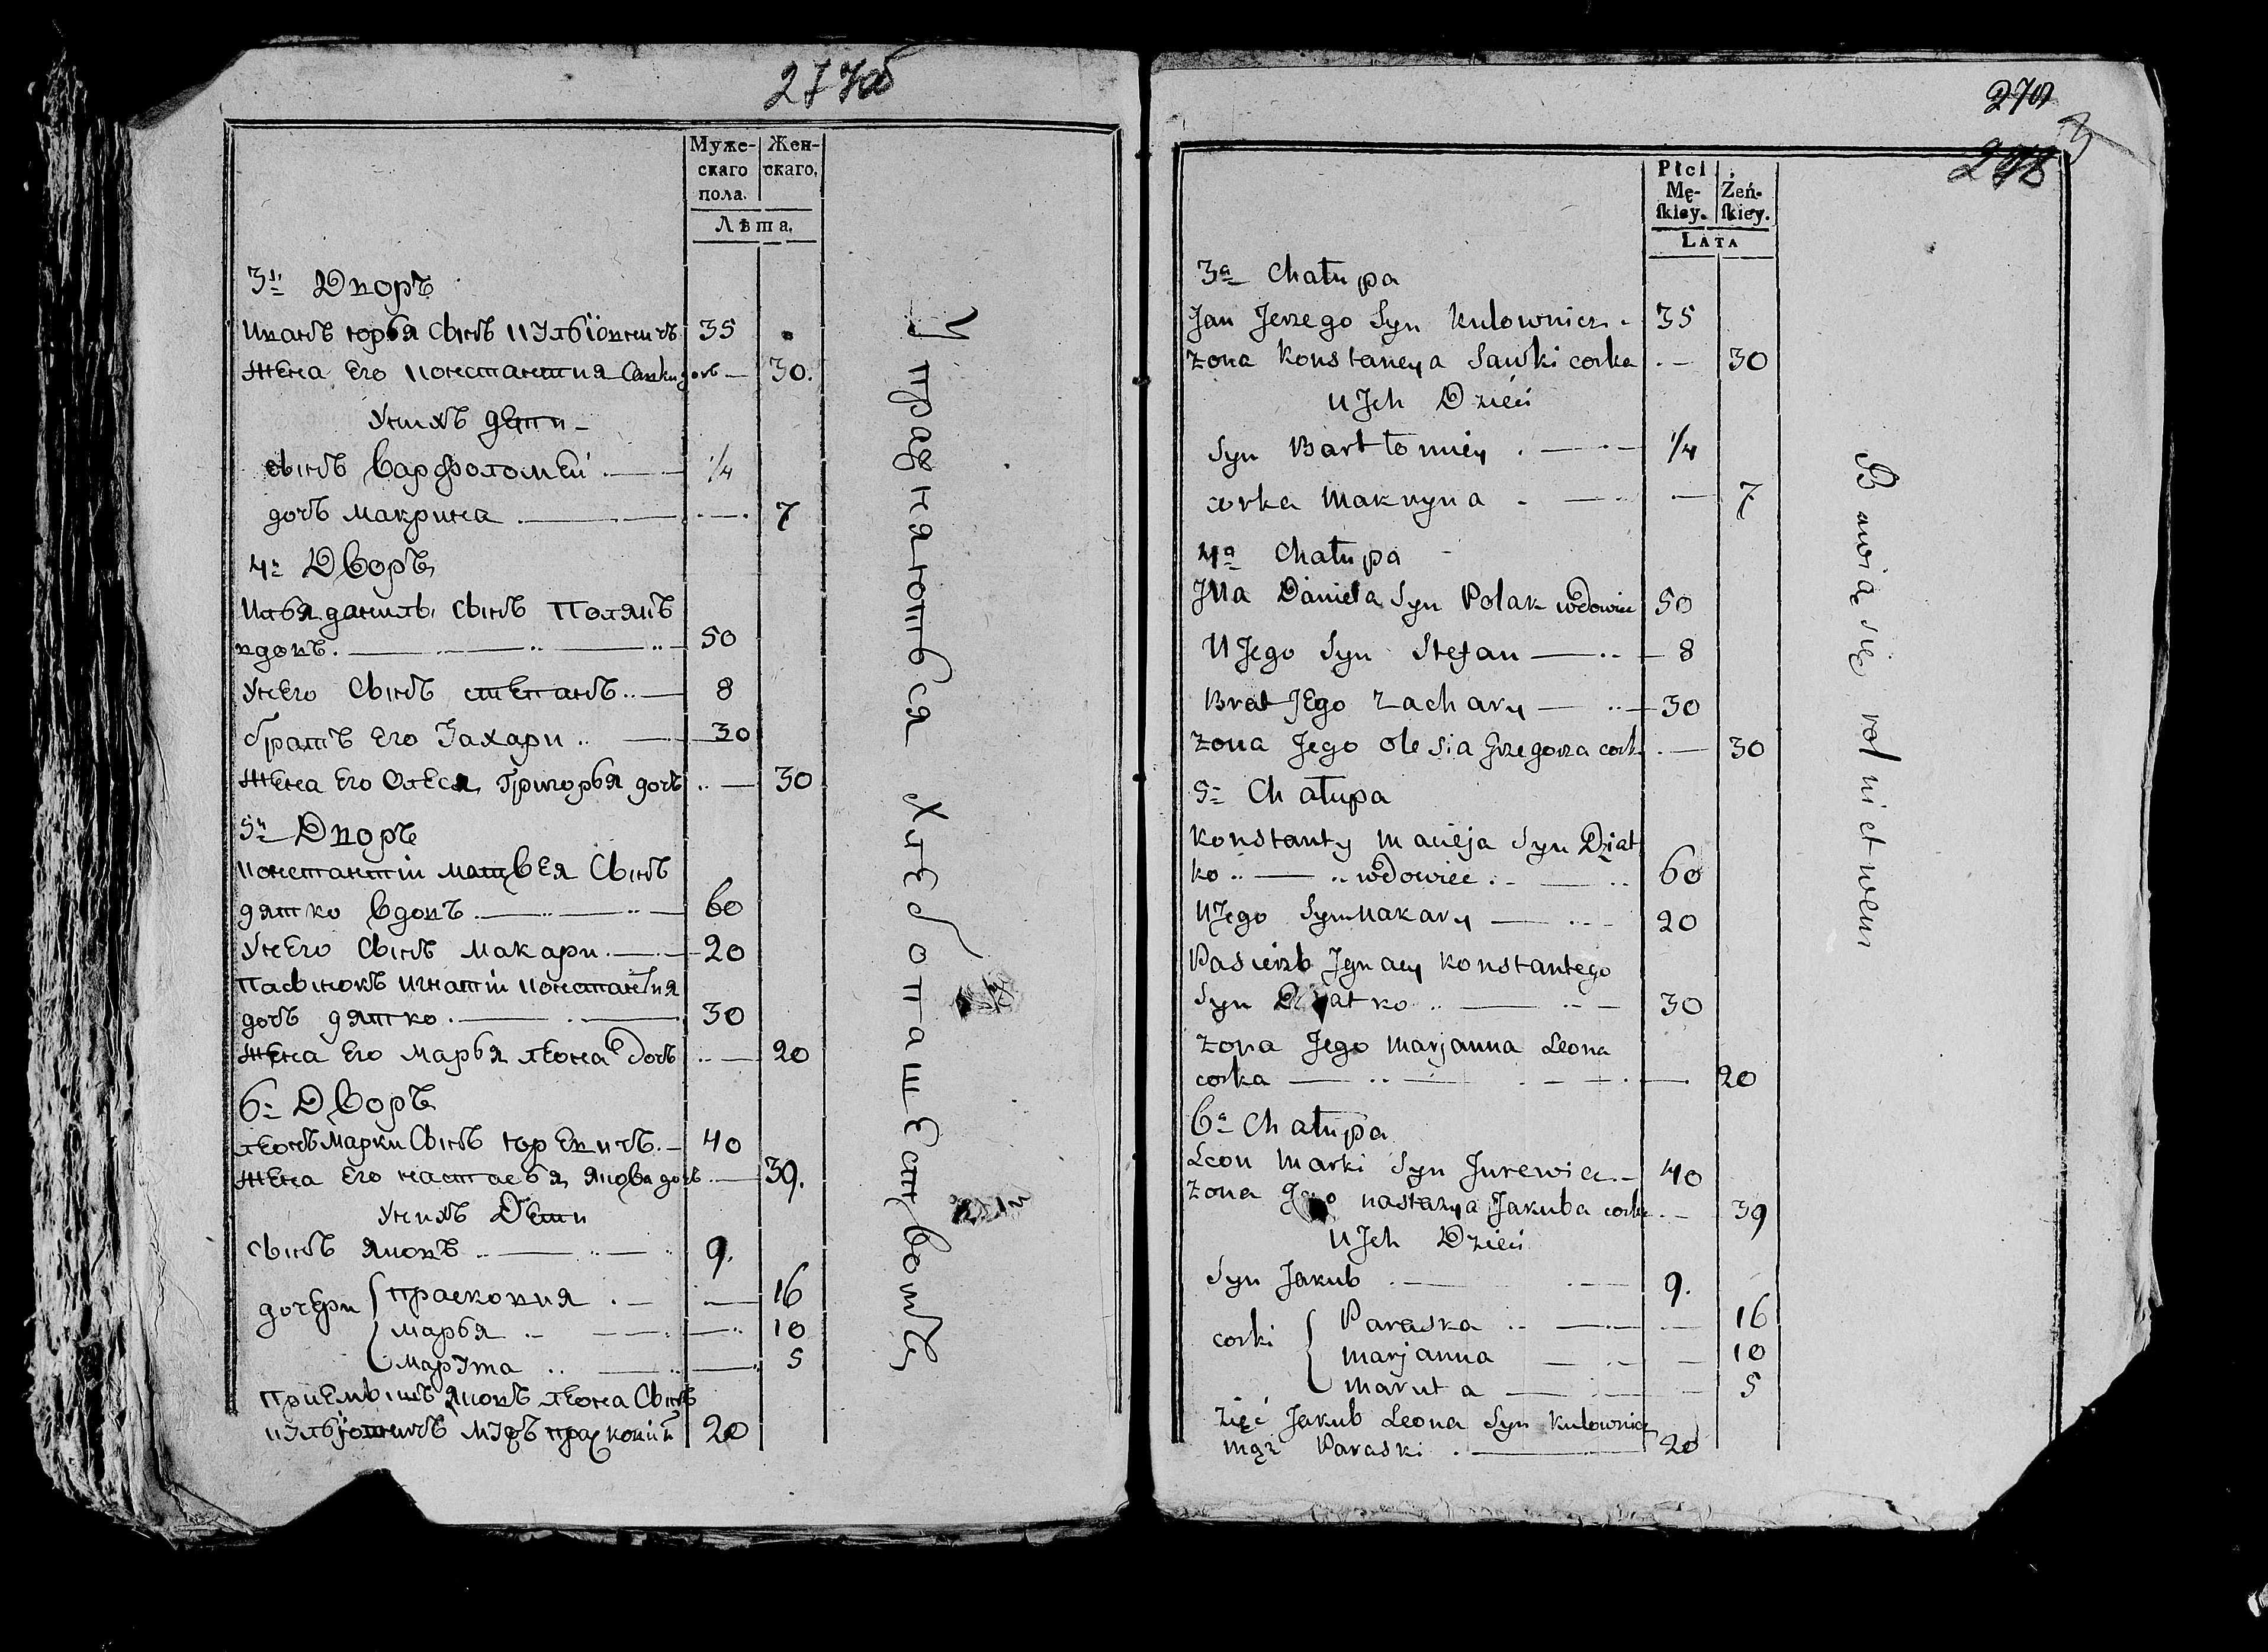 277об
Муже-
скаго
пола.
Жен-
скаго.
Лѣта.
3й Дворъ
Иванъ юрья Сынъ Кульiовничъ 35
Жена Его Констанция Савки дочъ — 30.
Унихъ дети
сынъ Варфоломей 1/4
дочъ макрина 7
4й Дворъ
Илья данилы Сынъ Полякъ
вдовъ 50
Унего Сынъ степанъ 8
братъ Его Захари 30
Жена Его Олеся Григорья дочъ 30
5й Дворъ
Константiи матвея Сынъ
дятко вдовъ 60
Унего Сынъ макари 20
Пасынокъ игнатiи Константия
дочъ дятко 30
Жена Его марья леона дочъ 20
6й Дворъ
леонъ марки Сынъ юревичъ 40
Жена Его настасья якова дочъ 39.
Унихъ Дети
Сынъ яковъ 9.
дочери
прасковия 16
марья 10
марута 5
приемышъ яковъ леона Сынъ
мужъ прасковии 20
Упражняються хлебопашествомъ
270
278
Płci
Mę-
skiey.
Zeń-
skiey.
LATA
3a Chałupa
Jan Jerzego Syn Kulownicz 35
zona Konstancya Sawki corka 30
U Jch Dzieci
Syn Barttomiey 1/4
corka makryna 7
4a Chałupa
Jlla Daniela Syn Polak wdowiec 50
U Jego Syn Stefan 8
Brat JEgo zachary 30
zona Jego olesia Grzegorza cork 30
5a Chałupa
Konstanty macieja Syn Dziat
ko wdowiec 60
U Jego Syn makary 20
Pasierzb Jgnacy Konstantego
Syn 30
zona Jego marjanna Leona
corka 20
6a Chałupa
Leon marki Syn Jurewicz 40
zona nastazya Jakuba corka 39
U Jch Dzieci
Syn Jakub 9.
corki
Paraska 16
marjanna 10
maruta 5
zięć Jakub Leona Syn Kulownicz
mąz Paraski 20
Bawią się rolnictwem